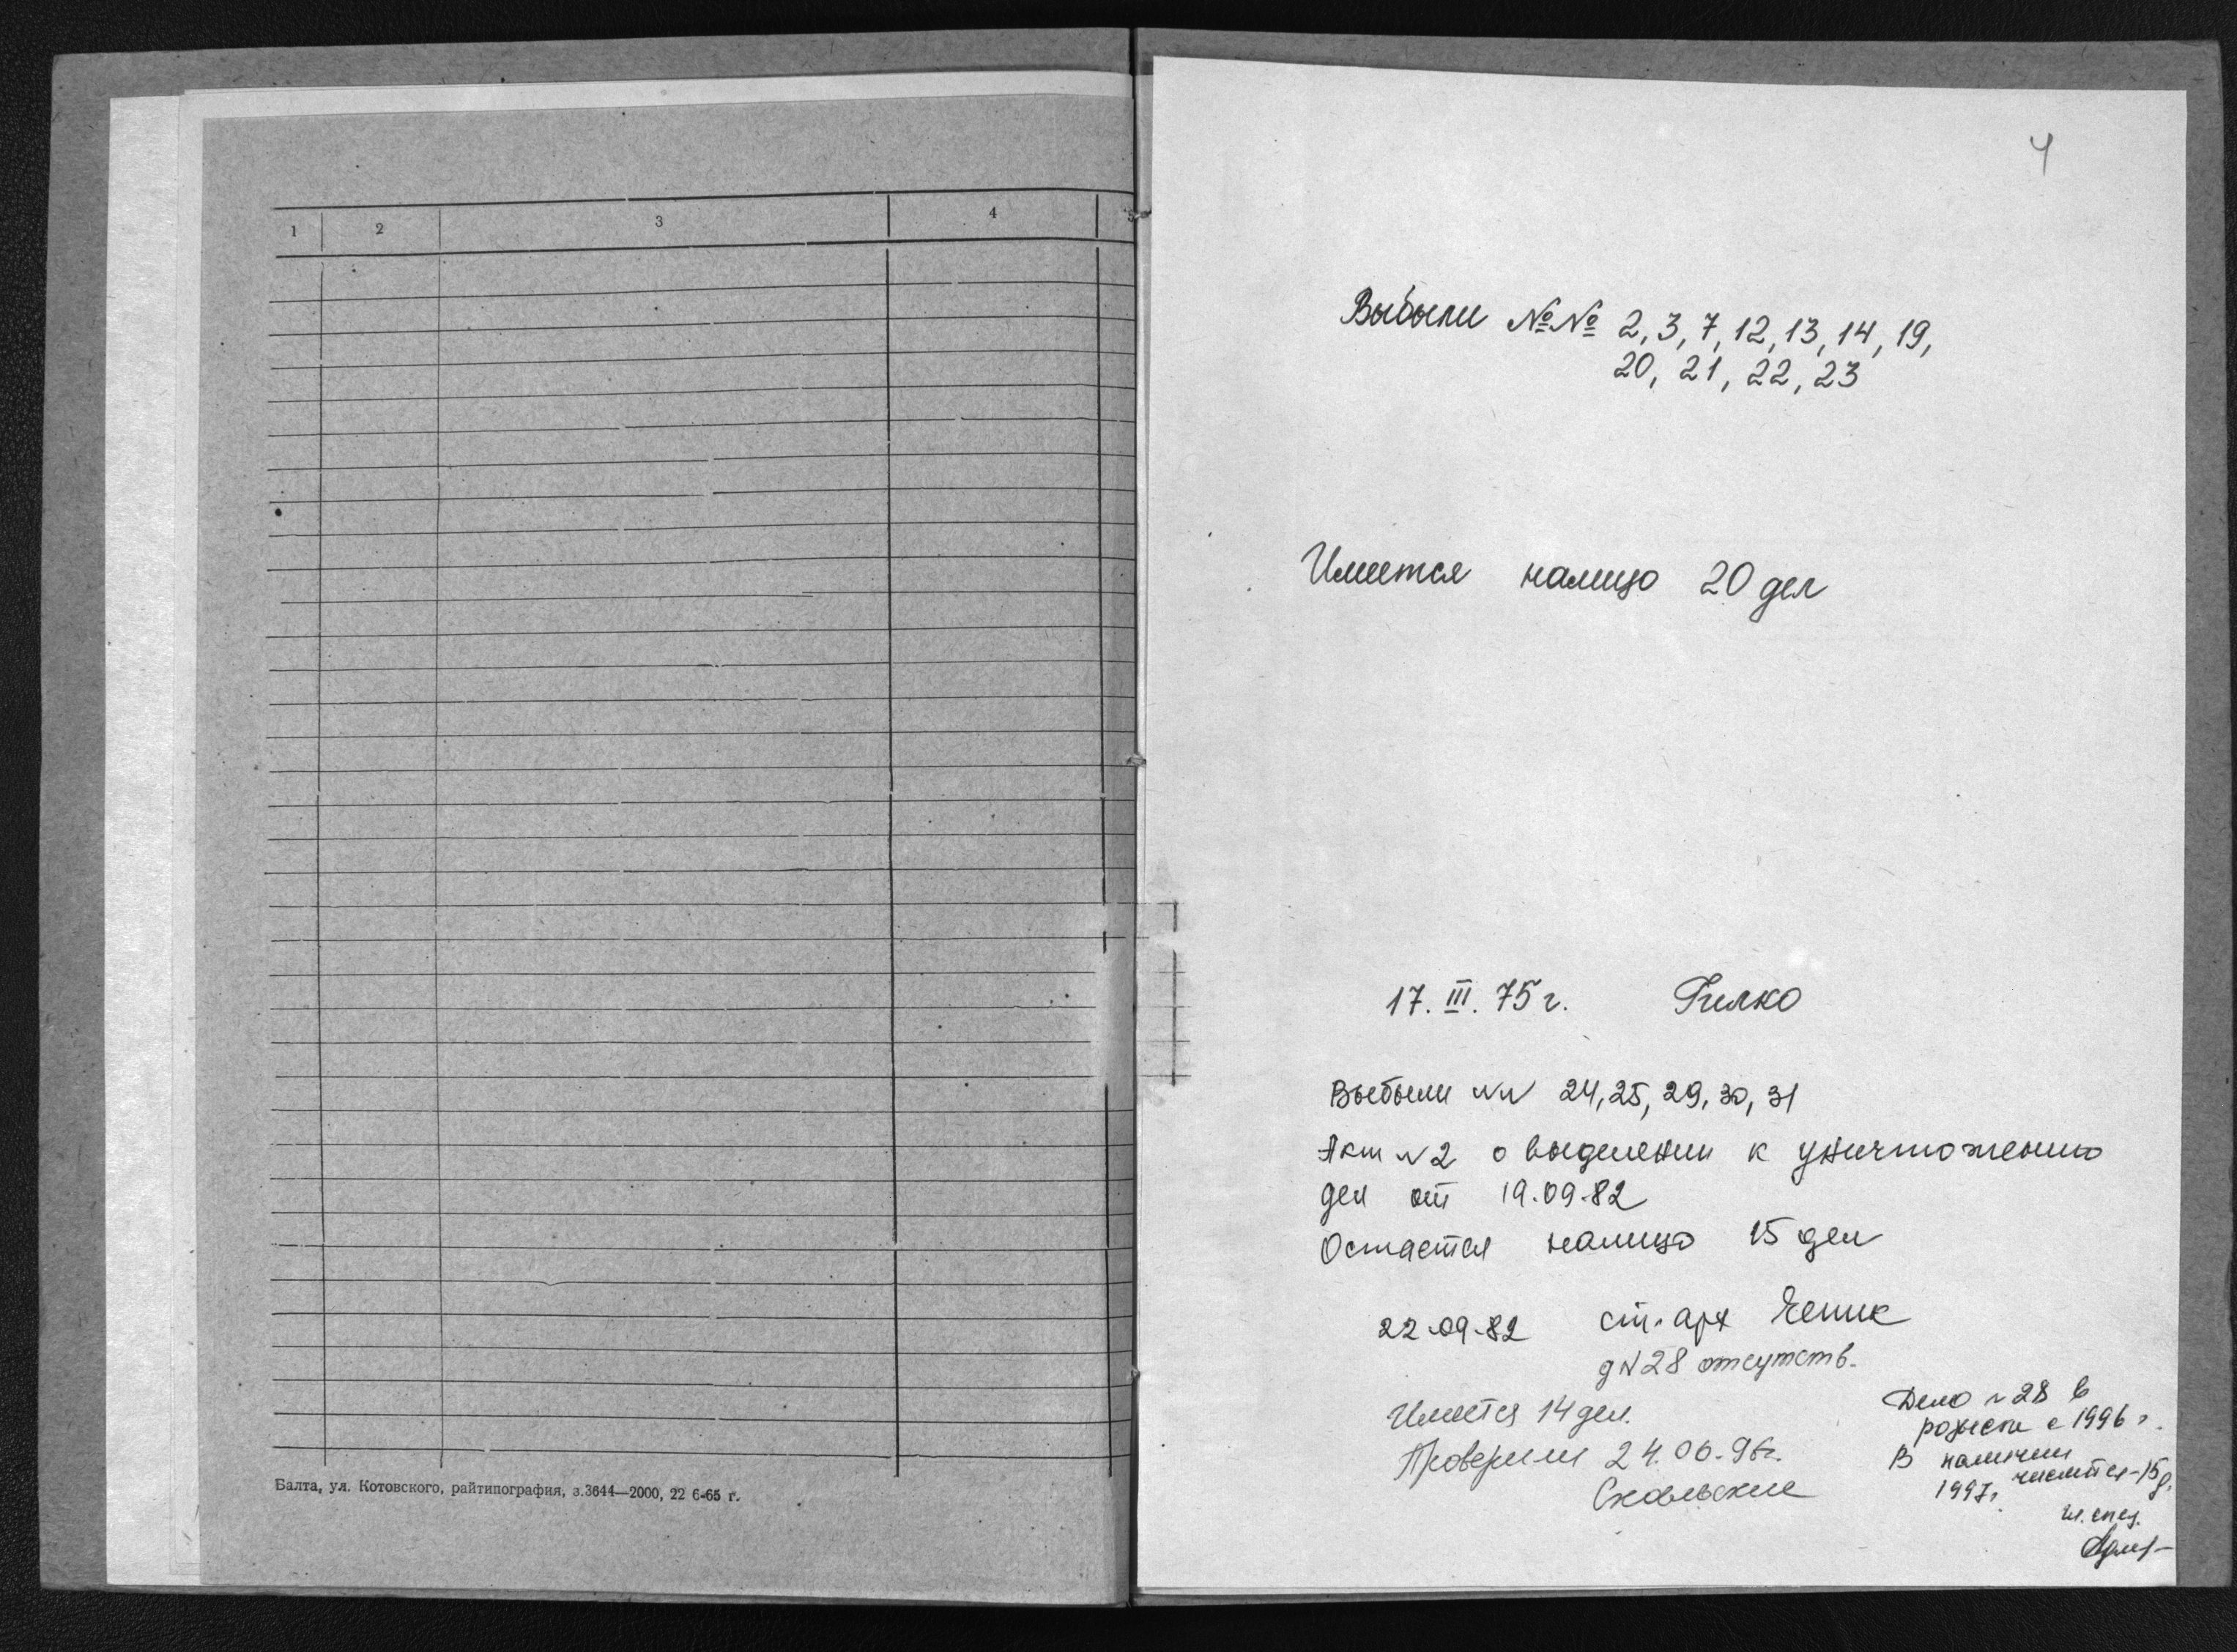 1 2 3 4 5
Балта, ул. Котовского, райтипография, з.3644—2000, 22 6-65 г.
4
Выбыли №№ 2, 3, 7, 12, 13, 14, 19,
20, 21, 22, 23
Имеется налицо 20 дел
17. III. 75 г. Гилко
Выбыли NN 24, 25, 29, 30, 31
Акт N 2 о выделении к уничтожению
дел от 19.09.82
Остается налицо 15 дел
22.09.82 ст. арх Чепик
д N 28 отсутств.
Имеется 14 дел.
Проверили 24.06.96г.
Дело N 28 в
розыске с 1996 г.
В наличии
числится - 15 д.
1997г.
гл. спец.